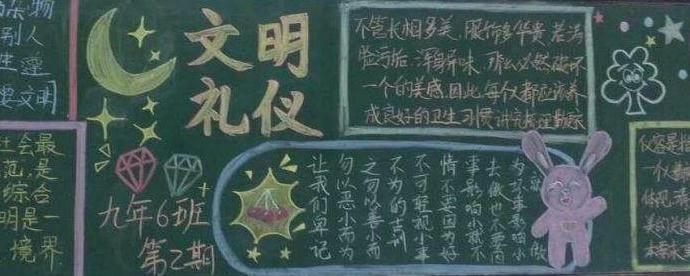 杂物
别人
生涯
要文明
社会最
范,是
综合
明是一
境界
文明
礼仪
九年6班
第2期
不管长相多美,服饰多华贵,若满
脸污垢,浑身异味,那么必然破坏
一个的美感,因此,每人都应该养
成良好的卫生习惯
做
为坏事影响小
去做也不要因
事影响小就不
情不要因为好
不可轻视小事
不为的古训
之勿以善小而
勿以恶小而为
让我们牢记
仪容是指
一人
体现
美的